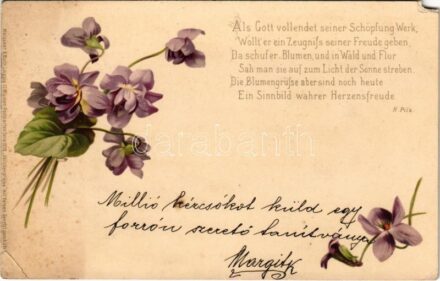 Als Gott vollendet seiner Schöpfung Werk,
Wollt' er ein Zeugniss seiner Freude geben,
Da schuf er Blumen, und in Wald und Flor
Sah man sie auf zum Licht der Sonne streben.
Die Blumengrüsse aber sind noch heute
Ein Sinnbild wahrer Herzensfreude
darabanth
Millió kézcsókot küld egy
forrón szerető tanítványa
Margitk